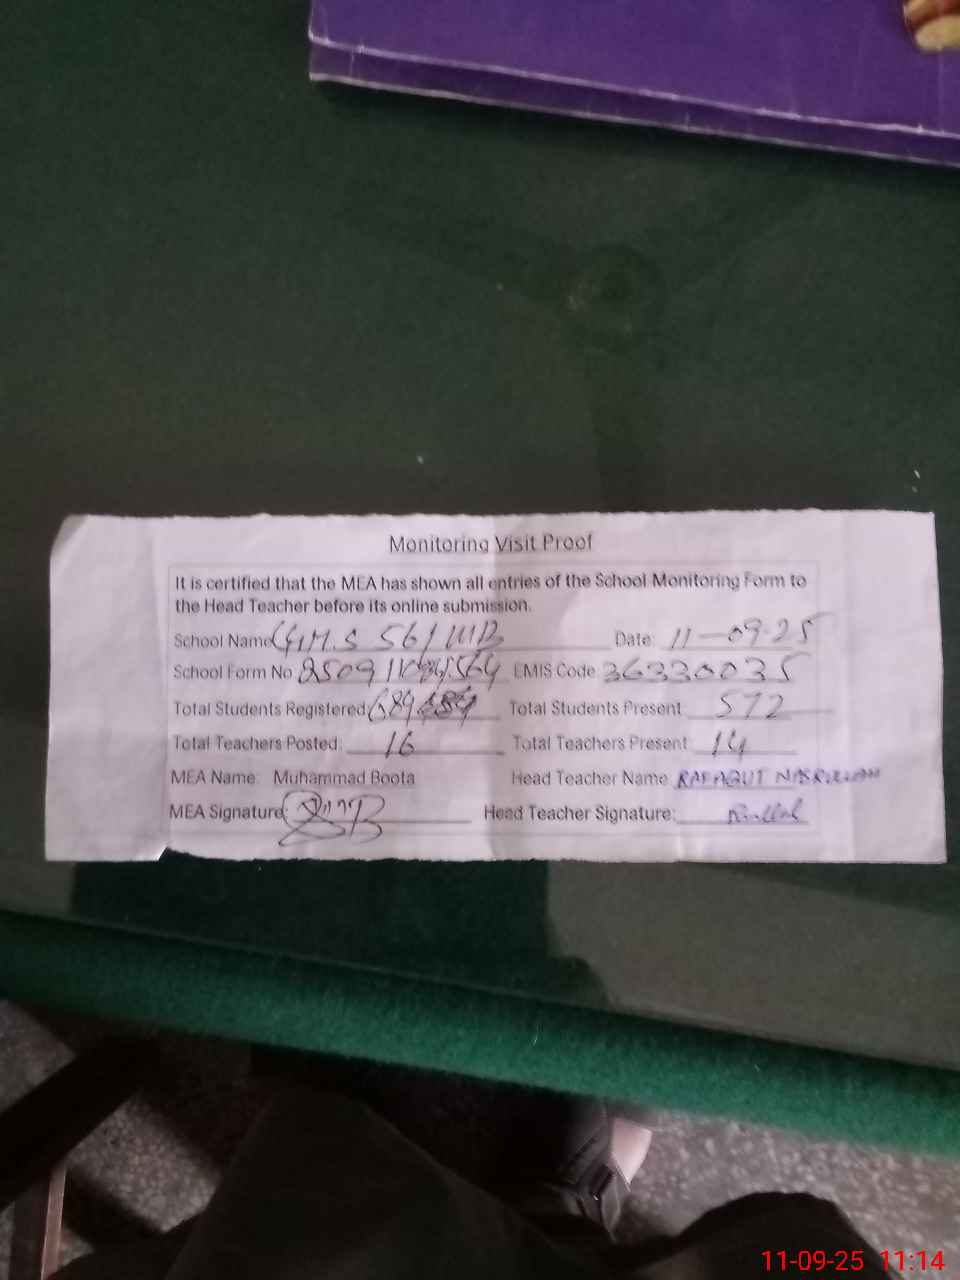 Monitoring Visit Proof
It is certified that the MEA has shown all entries of the School Monitoring Form to
the Head Teacher before its online submission.
School Name G.M.S 561 WB Date: 11-09-25
School Form No EMIS Code 36330035
Total Students Registered 689 Total Students Present: 572
Total Teachers Posted: 16 Total Teachers Present: 14
MEA Name: Muhammad Boota Head Teacher Name RAFAQUT NASRULLAH
MEA Signature: Head Teacher Signature:
11-09-25 11:14